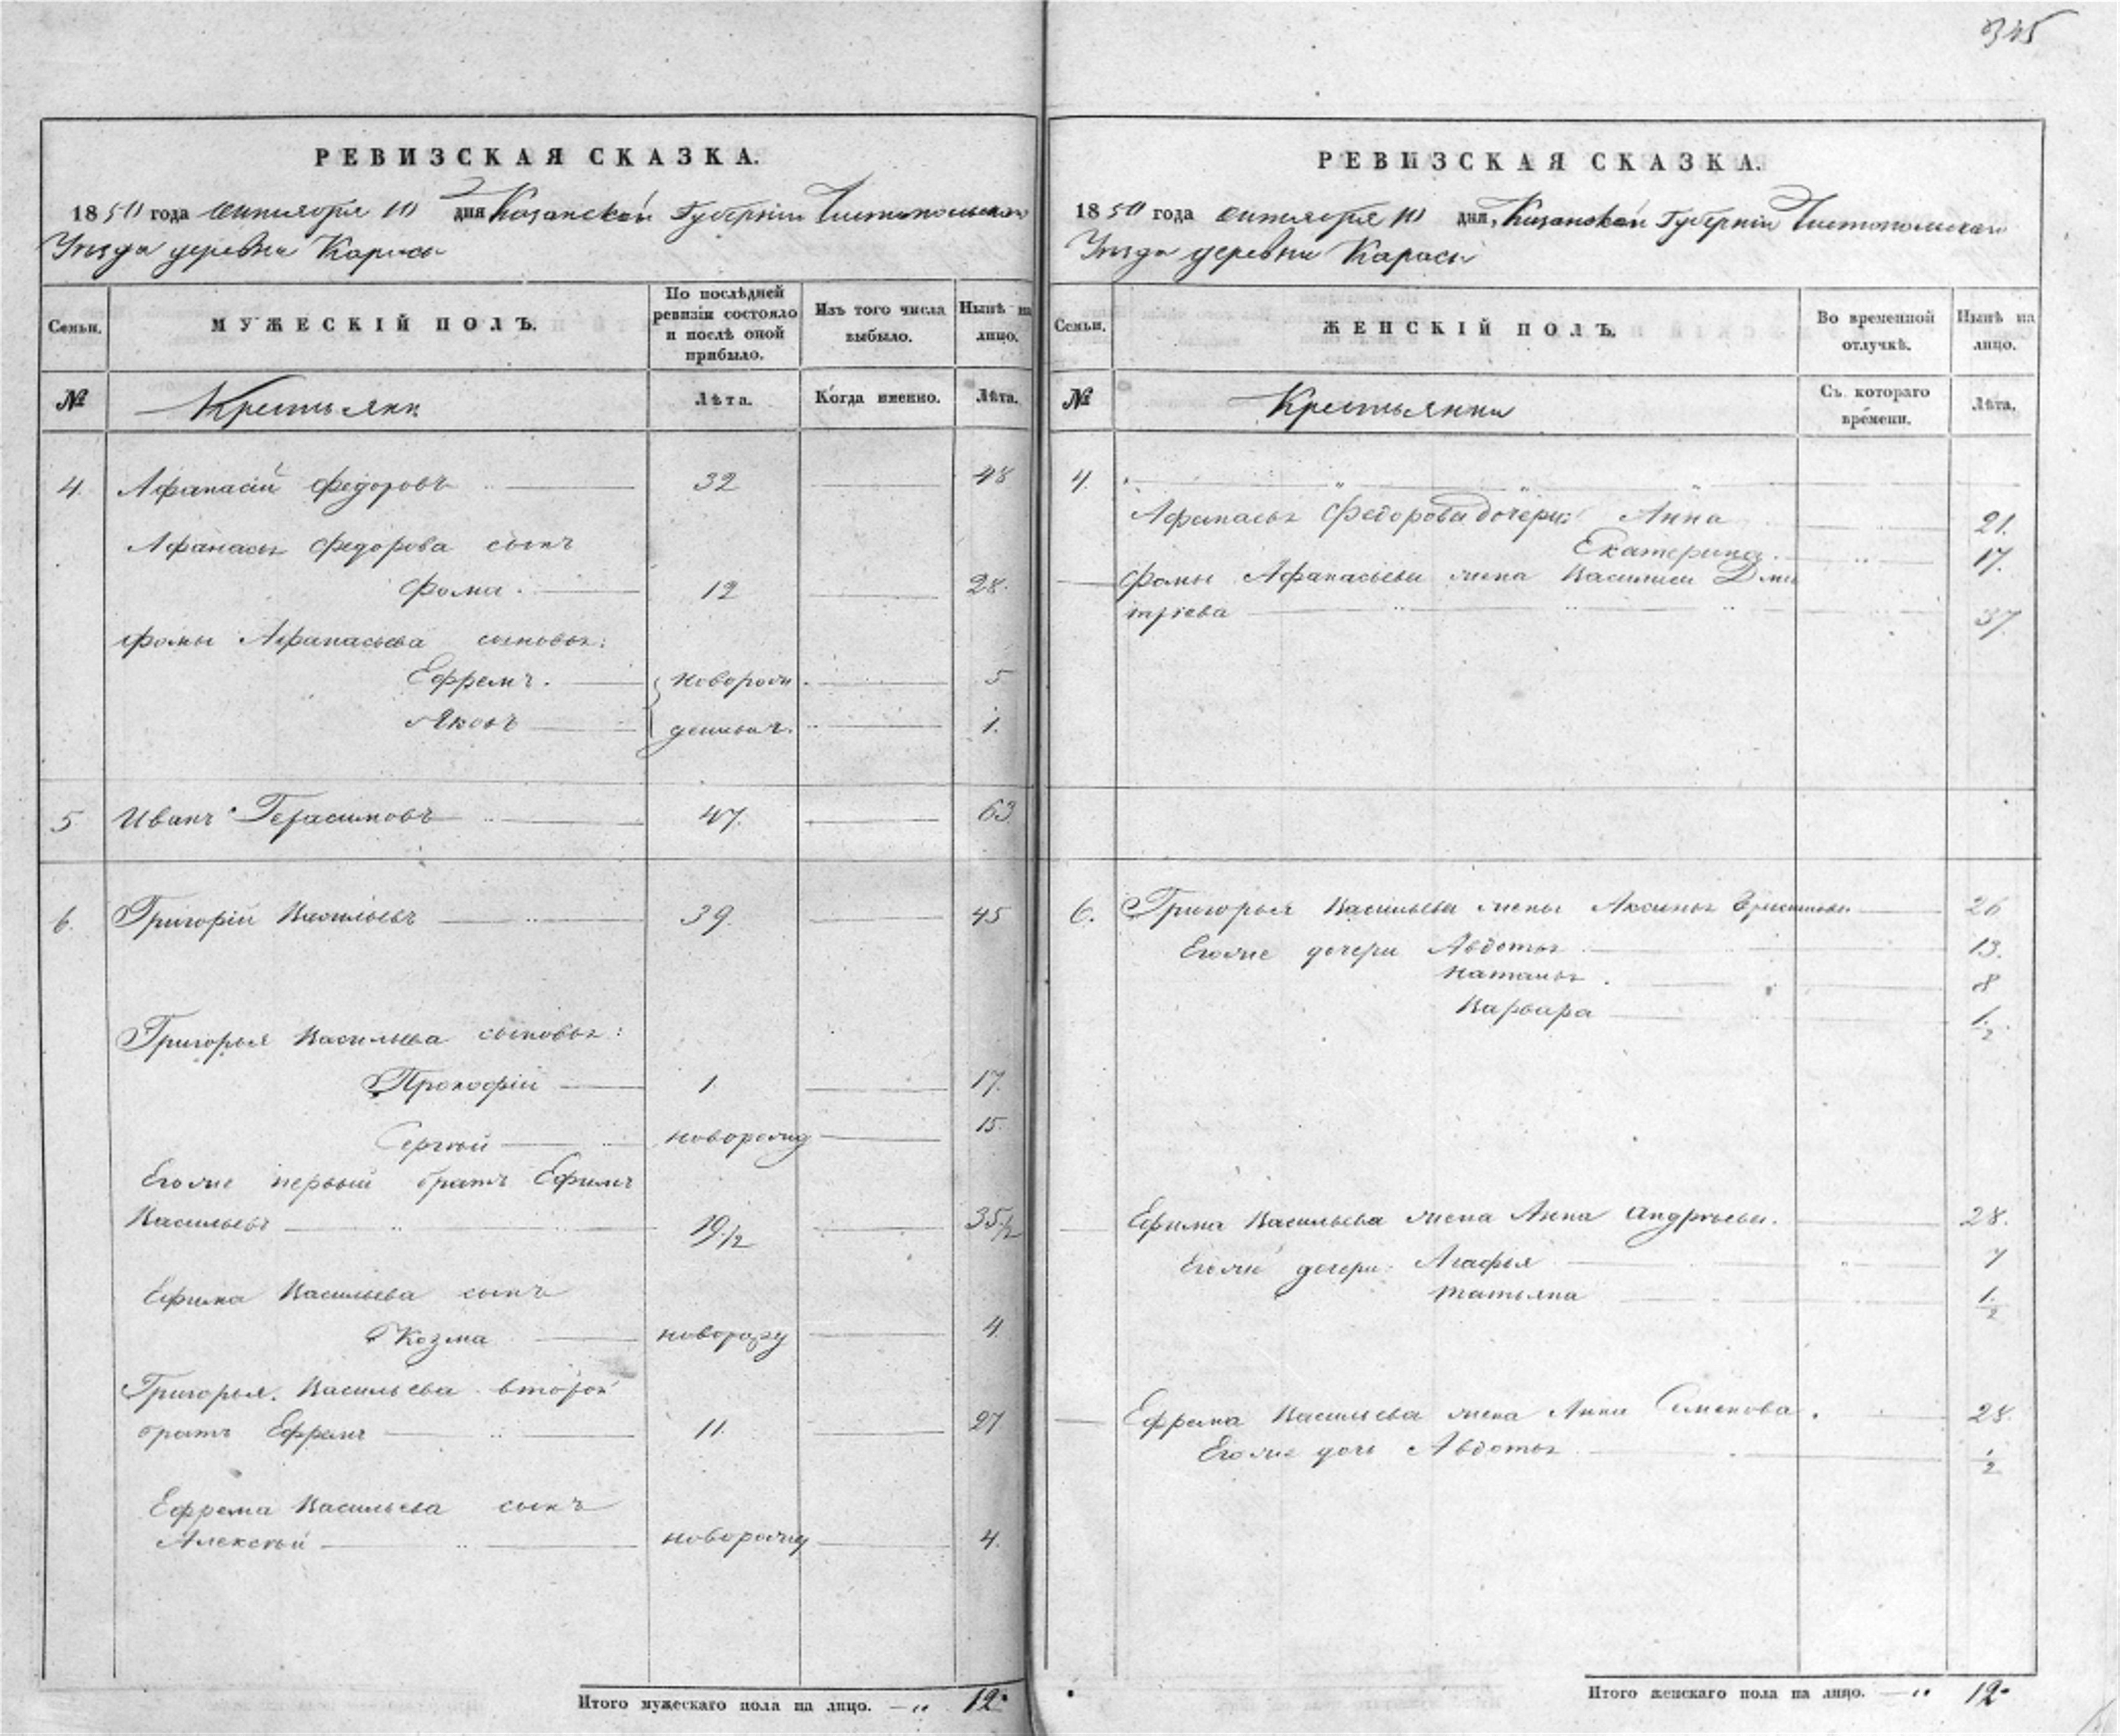 345
РЕВИЗСКАЯ СКАЗКА.
1850 года сентября 10 дня Казанской Губерніи Чистопольскаго
Уѣзда деревни Карасы
Семьи.
МУЖЕСКІЙ ПОЛЪ.
По послѣдней ревизіи состояло и послѣ оной прибыло.
Изъ того числа выбыло.
Нынѣ на лицо.
№
Крестьяне
Лѣта.
Когда именно.
Лѣта.
4. Афанасій Федоровъ 32 48
Афанасья Федорова сынъ
Фома. 12 28.
Фомы Афанасьева сыновья:
Ефремъ. новорож 5
Яковъ денныя. 1.
5 Иванъ Герасимовъ 47. 63
6. Григорій Васильевъ 39. 45
Григорья Васильева сыновья:
Прокофій 1. 17.
Сергѣй новорожд 15.
Егоже первый братъ Ефимъ
Васильевъ 19 1/2 35 1/2
Ефима Васильева сынъ
Козма новорожд 4.
Григорья Васильева второй
братъ Ефремъ 11. 27
Ефрема Васильева сынъ
Алексѣй новорожд 4.
Итого мужескаго пола на лицо. 12.
РЕВИЗСКАЯ СКАЗКА.
1850 года сентября 10 дня, Казанской Губерніи Чистопольскаго
Уѣзда деревни Карасы
Семьи.
ЖЕНСКІЙ ПОЛЪ.
Во временной отлучкѣ.
Нынѣ на лицо.
№
Крестьянки
Съ котораго времени.
Лѣта.
4.
Афанасья Федорова дочери: Анна 21.
Екатерина. 17.
Фомы Афанасьева жена Василиса Дми
тріева 37.
6. Григорья Васильева жены Аксинья 26
Егоже дочери Авдотья 13.
Наталья. 8
Варвара 1/2.
Ефима Васильева жена Анна Андрѣева. 28.
Егоже дочери: Агафья 7
Татьяна 1/2
Ефрема Васильева жена Анна Семенова. 28.
Егоже дочь Авдотья 1/2
Итого женскаго пола на лицо. 12.